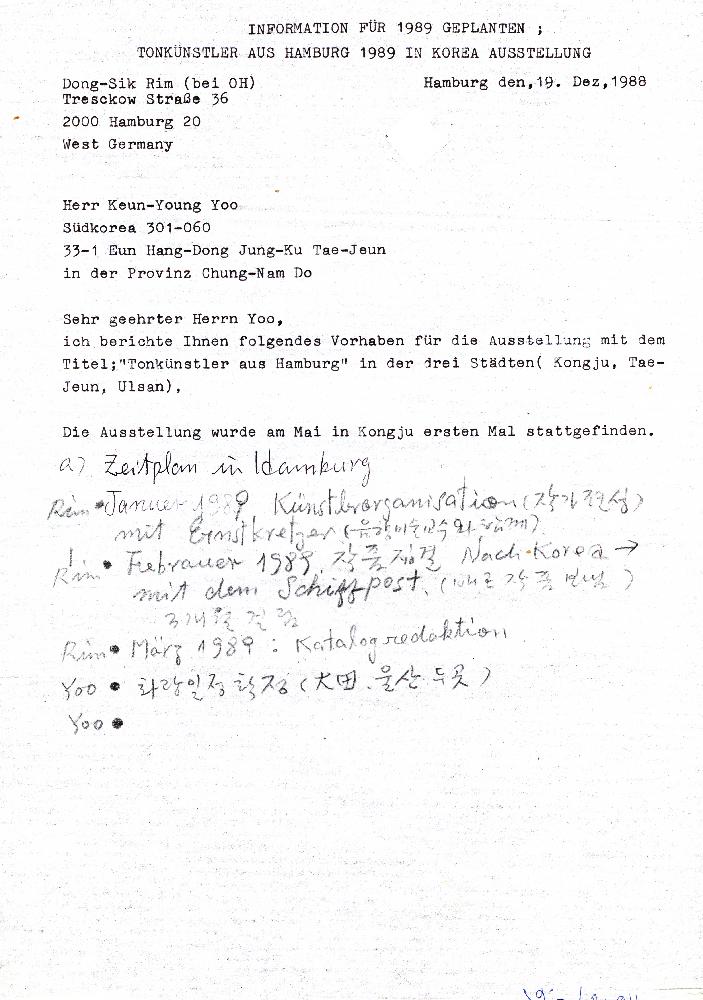 INFORMATION FÜR 1989 GEPLANTEN ;
TONKÜNSTLER AUS HAMBURG 1989 IN KOREA AUSSTELLUNG
Dong-Sik Rim (bei OH)
Hamburg den,19. Dez,1988
Tresckow Straße 36
2000 Hamburg 20
West Germany
Herr Keun-Young Yoo
Südkorea 301-060
33-1 Eun Hang-Dong Jung-Ku Tae-Jeun
in der Provinz Chung-Nam Do
Sehr geehrter Herrn Yoo,
ich berichte Ihnen folgendes Vorhaben für die Ausstellung mit dem
Titel;"Tonkünstler aus Hamburg" in der drei Städten( Kongju, Tae-
Jeun, Ulsan),
Die Ausstellung wurde am Mai in Kongju ersten Mal stattgefinden.
a) Zeitplan in Hamburg
Rim • Januer 1989, Künstlerorganisation (작가전성)
mit Ernstkretzer
Rim • Febrauer 1989, 작품집결 Nach Korea →
mit dem Schiffpost. (배로 작품 보냄)
3개월 걸림
Rim • März 1989 : Katalogredaktion
Yoo • 화랑일정 확정 (大田. 울산 두곳)
Yoo •